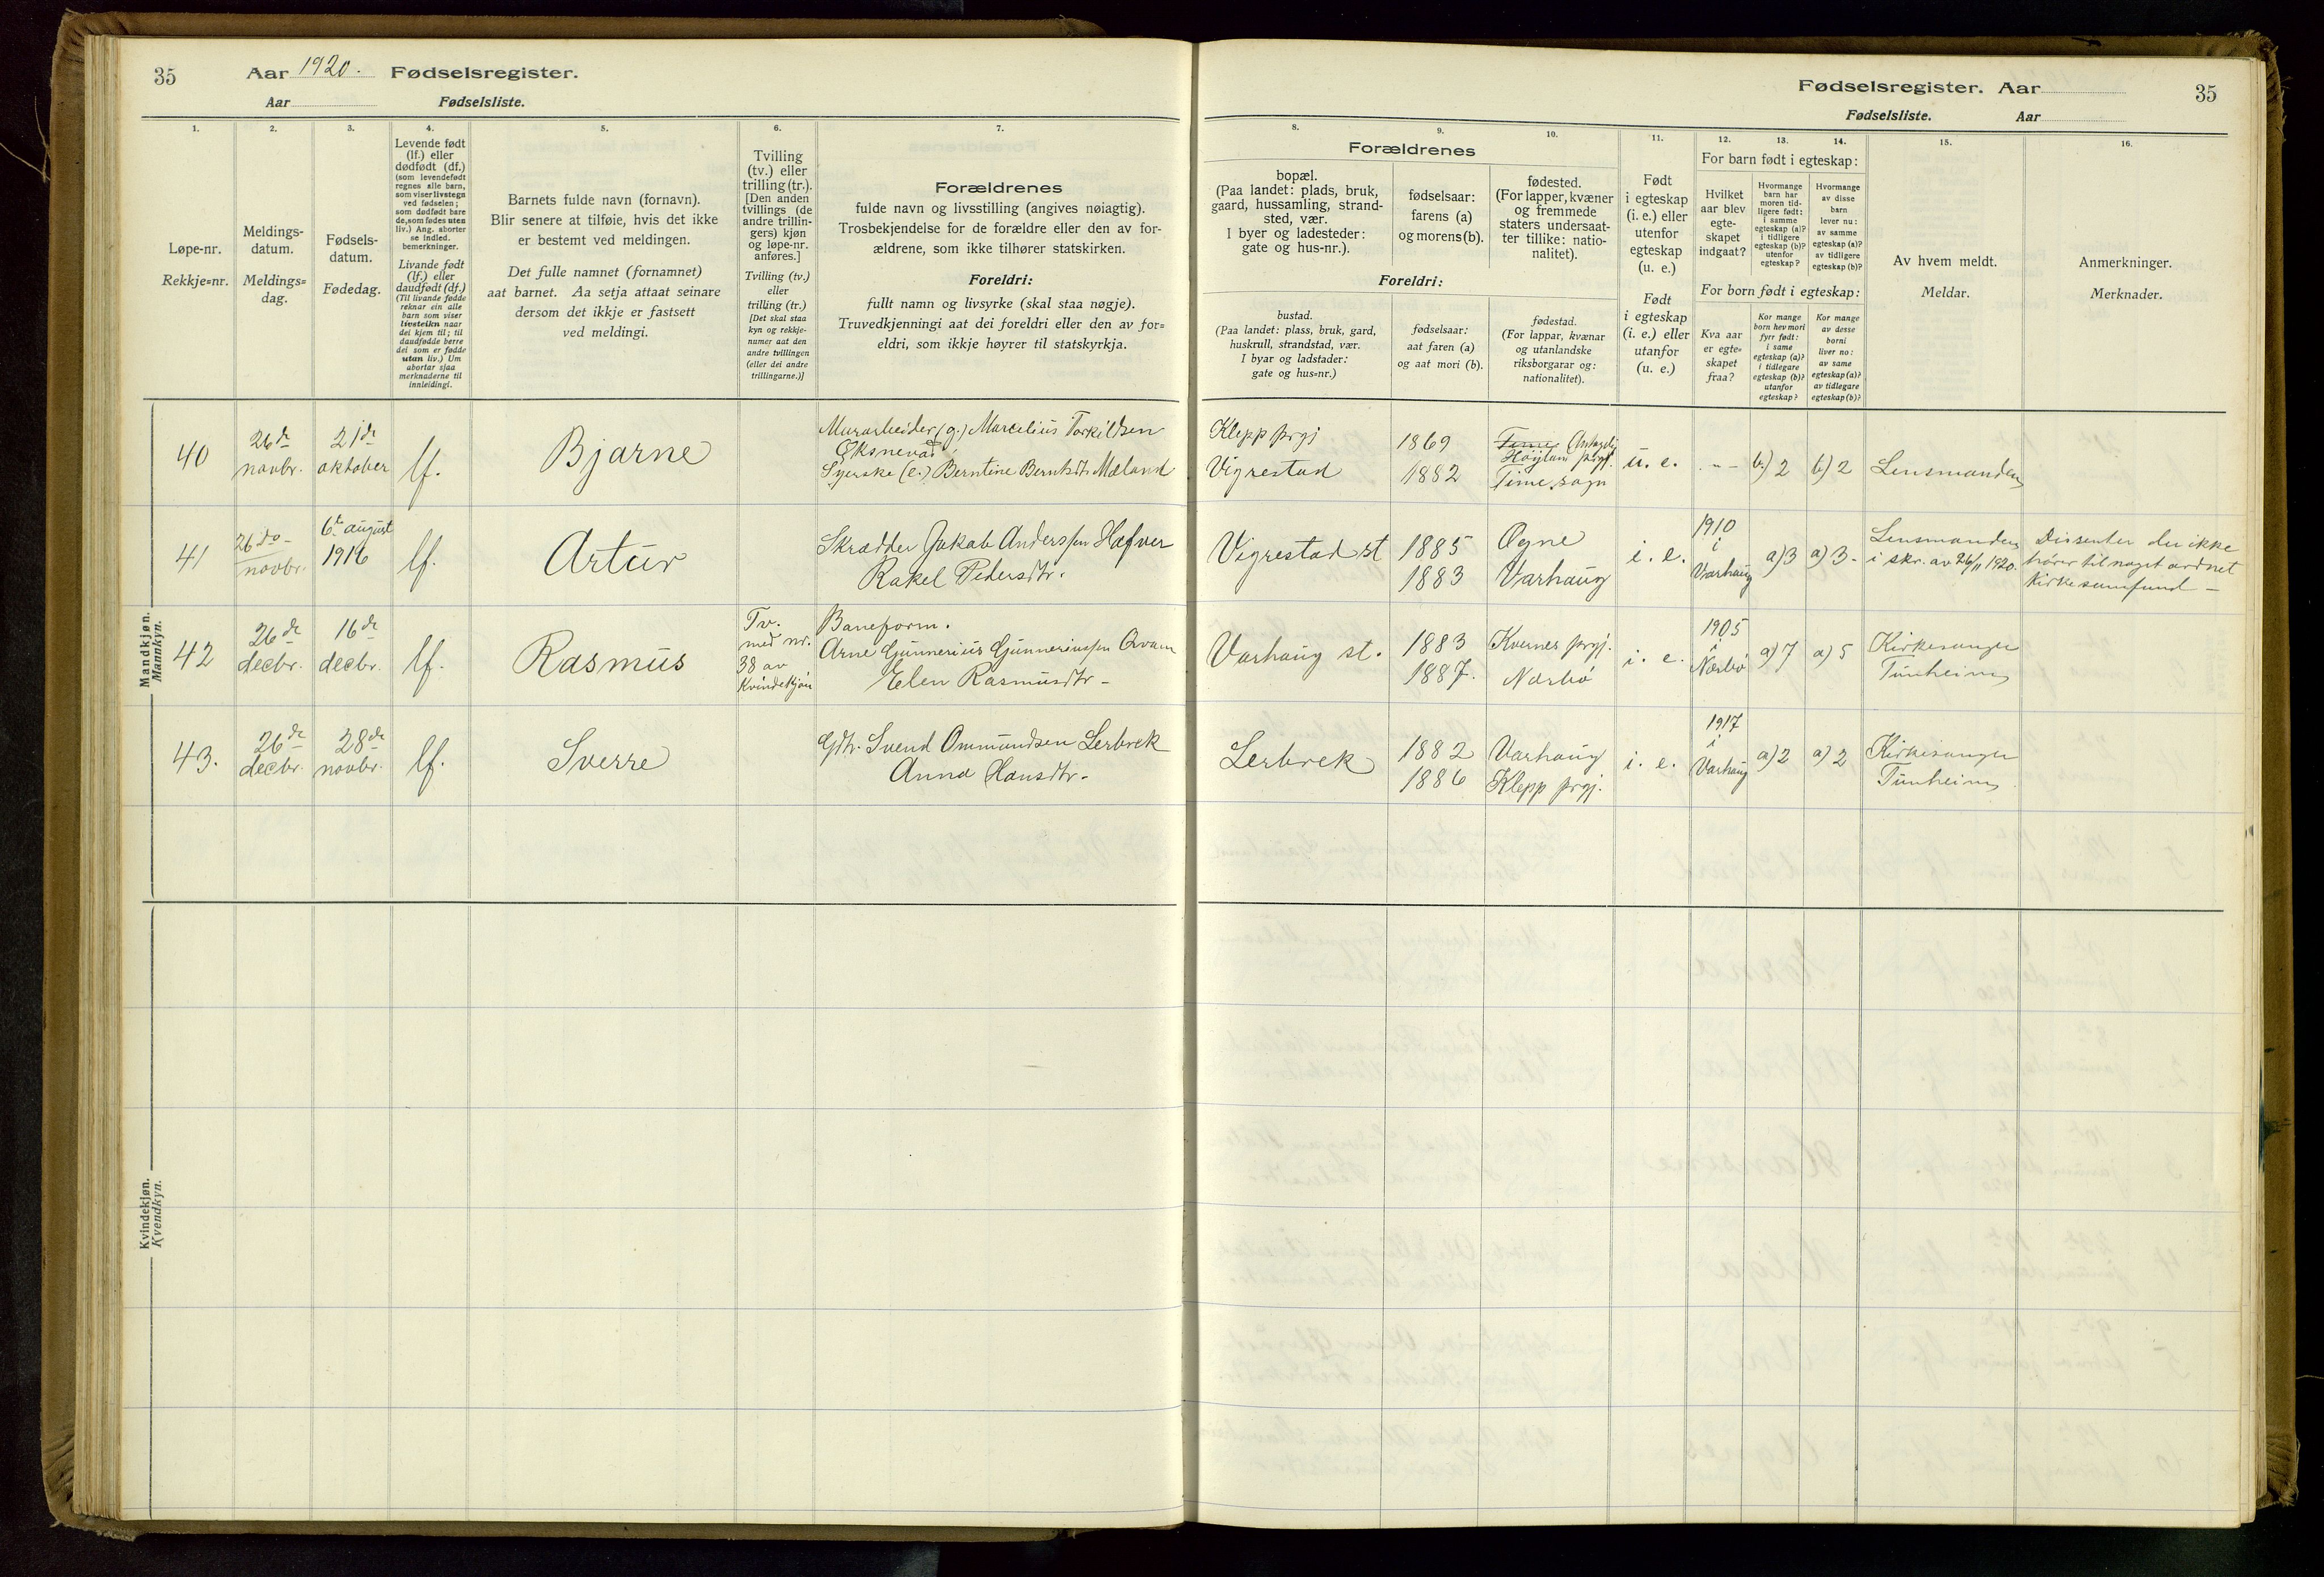 35
Aar 1920. Fødselsregister.
Aar Fødselsliste.
1.
Løpe-nr.
Rekkje=nr.
2.
Meldings-
datum.
Meldings=
dag.
3.
Fødsels-
datum.
Fødedag.
4.
Levende født
(lf.) eller
dødfødt (df.)
(som levendefødt
regnes alle barn,
som viser livstegn
ved fødselen;
som dødfødt bare
de, som fødes uten
liv.) Ang. aborter
se indled.
bemerkninger.
Livande født
(lf.) eller
daudfødt (df.)
(Til livande fødde
reknar ein alle
barn som viser
livsteikn naar
dei kjem til; til
daudfødde berre
dei som er fødde
utan liv.) Um
abortar sjaa
merknaderne til
innleidingi.
5.
Barnets fulde navn (fornavn).
Blir senere at tilføie, hvis det ikke
er bestemt ved meldingen.
Det fulle namnet (fornamnet)
aat barnet. Aa setja attaat seinare
dersom det ikkje er fastsett
ved meldingi.
6.
Tvilling
(tv.) eller
trilling (tr.).
[Den anden
tvillings (de
andre trillin-
gers) kjøn
og løpe-nr.
anføres.]
Tvilling (tv.)
eller
trilling (tr.)
[Det skal staa
kyn og rekkje-
numer aat den
andre tvillingen
(eller dei andre
trillingarne.)]
7.
Forældrenes
fulde navn og livsstilling (angives nøiagtig).
Trosbekjendelse for de forældre eller den av for-
ældrene, som ikke tilhører statskirken.
Foreldri:
fullt namn og livsyrke (skal staa nøgje).
Truvedkjenningi aat dei foreldri eller den av for=
eldri, som ikkje høyrer til statskyrkja.
Mandkjøn.
Mannkyn.
40
26de
novbr.
21de
oktober
lf.
Bjarne
Murarbeider (g.) Marcelius Torkildsen
Øksnevad
Syerske (e.) Berntine Berntsdtr. Mæland
41
26de
novbr.
6te august
1916
lf.
Artur
Skrædder Jakob Anderssen Hafver
Rakel Pedersdtr.
42
26de
decbr.
16de
decbr.
lf.
Rasmus
Tv.
med nr.
38 av
Kvindekjøn
Baneform.
Arne Gunnerius Gunneriussen Qvam
Elen Rasmusdtr.
43.
26de
decbr.
28de
novbr.
lf.
Sverre
Gdbr. Svend Ommundsen Lerbrek
Anna Hansdtr.
Kvindekjøn.
Kvendkyn.
Fødselsregister. Aar
35
Fødselsliste. Aar
8.
Forældrenes
bopæl.
(Paa landet: plads, bruk,
gaard, hussamling, strand-
sted, vær.
I byer og ladesteder:
gate og hus-nr.).
Foreldri:
bustad.
(Paa landet: plass, bruk, gard,
huskrull, strandstad, vær.
I byar og ladstader:
gate og hus=nr.)
9.
fødselsaar:
farens (a)
og morens (b).
fødselsaar:
aat faren (a)
og aat mori (b).
10.
fødested.
(For lapper, kvæner
og fremmede
staters undersaat-
ter tillike: natio-
nalitet).
fødestad.
(For lappar, kvænar
og utanlandske
riksborgarar og:
nationalitet).
11.
Født
i egteskap
(i. e.) eller
utenfor
egteskap
(u. e.)
Født
i egteskap
(i. e.) eller
utanfor
(u. e.)
12.
13.
14.
For barn født i egteskap:
Hvilket
aar blev
egte-
skapet
indgaat?
Hvormange
barn har
moren tid-
ligere født:
i samme
egteskap (a)?
i tidligere
egteskap (b)?
utenfor
egteskap?
Hvormange
av disse
barn
lever nu:
av samme
egteskap (a)?
av tidligere
egteskap (b)?
For born født i egteskap:
Kva aar
er egte=
skapet
fraa?
Kor mange
born hev mori
fyrr født:
i same
egteskap (a)?
i tidlegare
egteskap (b)?
utanfor
egteskap?
Kor mange
av desse
borni
liver no:
av same
egteskap (a)?
av tidlegare
egteskap (b)?
15.
Av hvem meldt.
Meldar.
16.
Anmerkninger.
Merknader.
Klepp prgj
Vigrestad
1869
1882
Time
prgj.
Time sogn
u. e.
- -
b) 2
b) 2
Lensmanden
Vigrestad st
1885
1883
Ogne
Varhaug
i. e.
1910
i
Varhaug
a) 3
a) 3-
Lensmanden
i skr. av 26/11 1920.
Dissenter der ikke
hører til noget ordnet
kirkesamfund -
Varhaug st.
1883
1887.
Kvernes prgj.
Nærbø
i. e.
1905
i
Nærbø
a) 7
a) 5
Kirkesanger
Tunheim
Lerbrek
1882
1886
Varhaug
Klepp prgj.
i. e.
1917
i
Varhaug
a) 2
a) 2
Kirkesanger
Tunheim